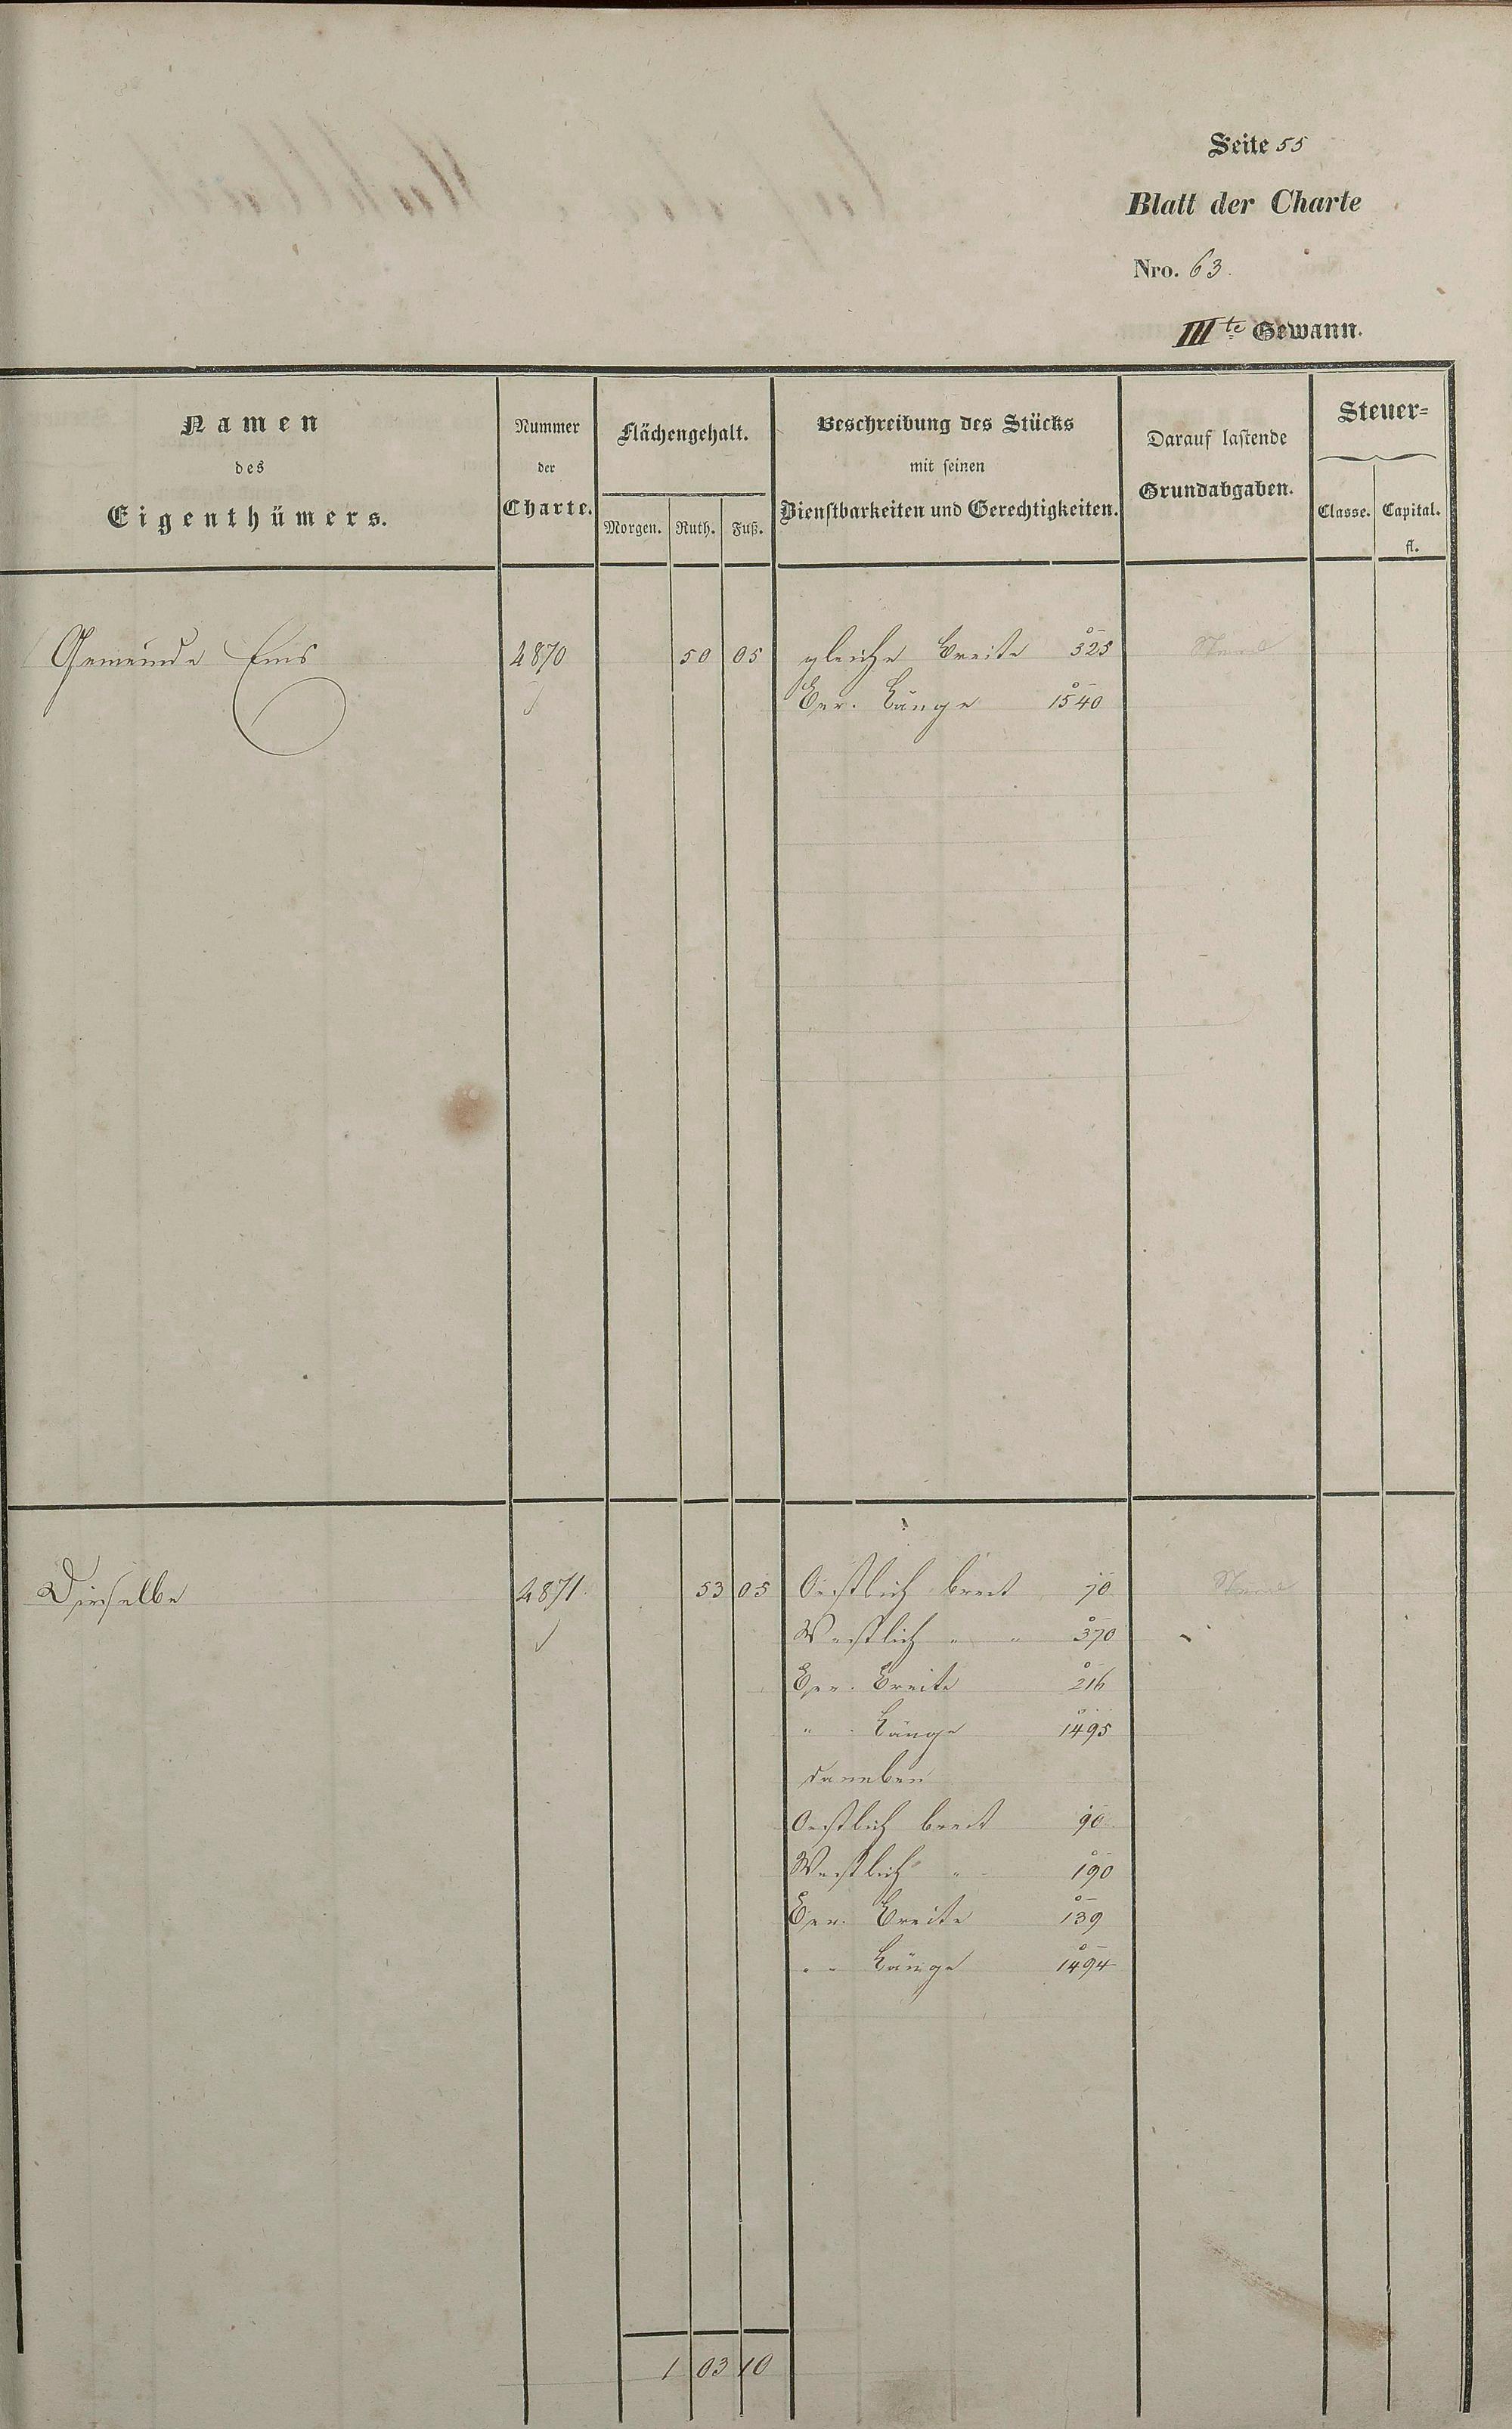 Seite 55
Blatt der Charte
Nro. 63.
IIIte Gewann.
Namen
des
Eigenthümers.
Nummer
der
Charte.
Flächengehalt.
Morgen. Ruth. Fuß.
Beschreibung des Stücks
mit seinen
Dienstbarkeiten und Gerechtigkeiten.
Darauf lastende
Grundabgaben.
Steuer=
Classe. Capital.
fl.
Gemeinde Ems 4870 50 05 gleiche Breite 325
Ger. Länge 1540
Dieselbe 4871. 53 05 Oestlich breit 70
Westlich " " 370
Ger. Breite 216
" Länge 1495
daneben
Oestlich breit 90
Westlich " 190
Ger. Breite 139
" " Länge 1494
1 03 10